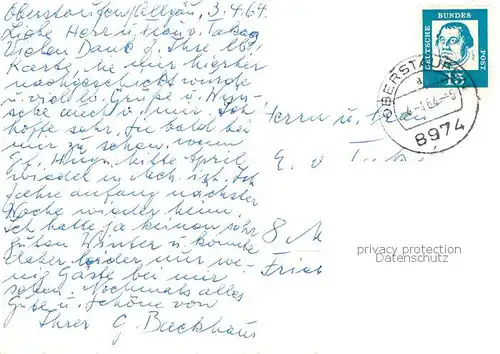 Oberstaufen/Allgäu, 3.4.64
Liebe Herr u. Frau v.
Vielen Dank f. Ihre lb.
Karte, die mir hierher
nachgeschickt wurde
u. viele lb. Grüße u.
auch v. mir. Ich
hoffe sehr, Sie bald bei
mir zu sehen, wenn
Mitte April
wieder in ist. Ich
fahre anfang nächster
Woche wieder heim.
Ich hatte ja keinen sehr
guten Winter u. konnte
daher leider nur we-
nig Gäste bei mir
sehen. Nochmals alles
Gute u. Schöne von
Ihrer G. Backhaus
Herrn u. Frau
E. v.
8 M
Fried
DEUTSCHE BUNDES POST
15
OBERSTAUFEN
8974
privacy protection
Datenschutz